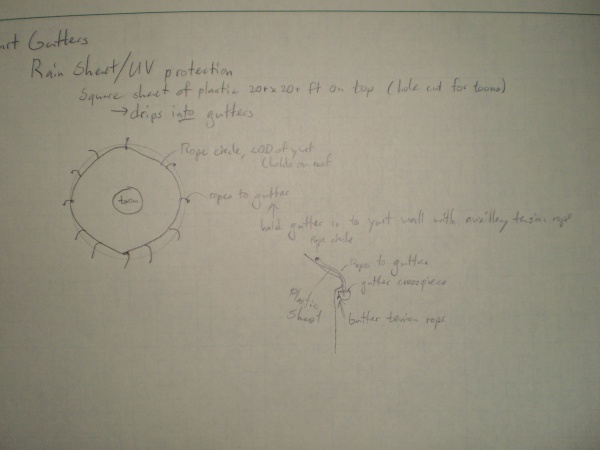 urt Gutters
Rain Sheet/UV protection
Square sheet of plastic 20+ x 20+ ft on top (hole cut for toono)
→ drips into gutters
Rope circle, of yurt
(holds on roof
toono
ropes to gutter
hold gutter in to yurt wall with auxilley tension rope
rope circle
ropes to gutter
gutter crosspiece
Plastic
Sheet
Gutter tension rope